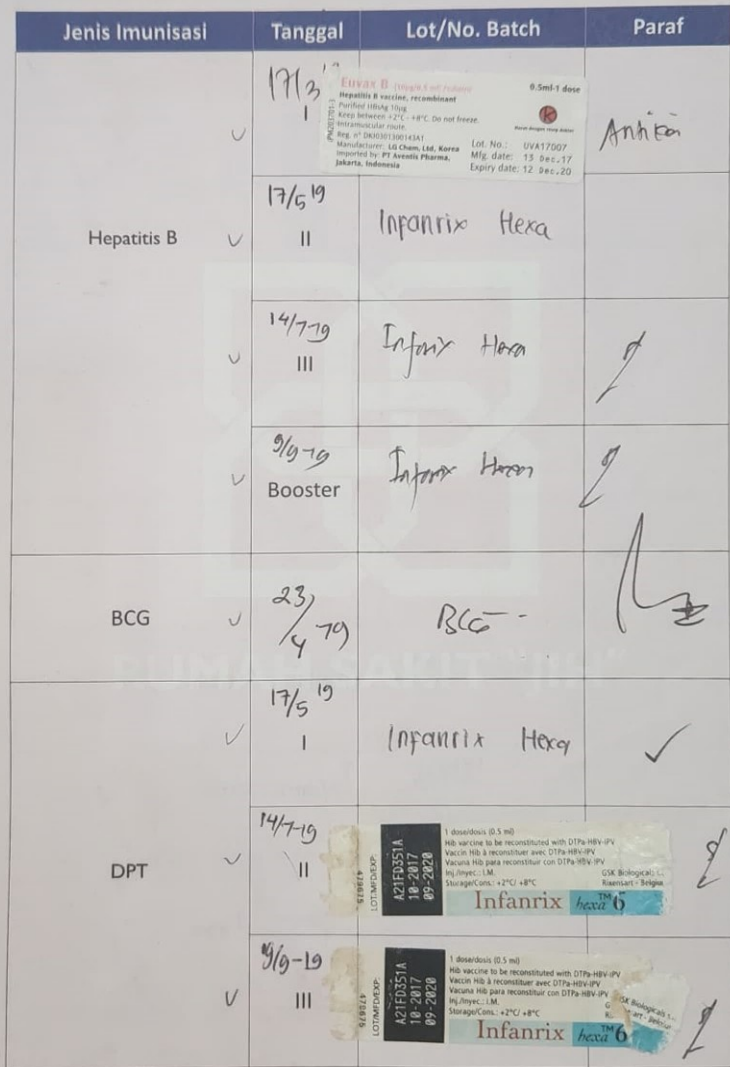 Jenis Imunisasi Tanggal Lot/No. Batch Paraf
17/3 19
I
Euvax B
0.5ml-1 dose
Hepatitis B vaccine, recombinant
Purified HBsAg 10µg
Keep between +2°C - +8°C. Do not freeze.
Intramuscular route.
Manufacturer: LG Chem, Ltd, Korea
Imported by: PT Aventis Pharma,
Jakarta, Indonesia
Lot. No.: UVA17007
Mfg. date: 13 Dec.17
Expiry date: 12 Dec.20
Hepatitis B
17/5 19
II
Infanrix Hexa
14/7-19
III
Hexa
9/9-19
Booster
BCG
23/4 -19
BCG
RUMAH SAKIT "JIH"
DPT
17/5 19
I
Infanrix Hexa
14/7-19
II
470675
LOT/MFD/EXP:
A21FD351A
10-2017
09-2020
1 dose/dosis (0.5 ml)
Hib vaccine to be reconstituted with DTPa-HBV-IPV
Vaccin Hib à reconstituer avec DTPa-HBV-IPV
Vacuna Hib para reconstituir con DTPa-HBV-IPV
Inj./Inyec.: I.M.
Storage/Cons.: +2°C/ +8°C
GSK Biologicals
Rixensart - Belgium
Infanrix hexa™ 6
9/9-19
III
470675
LOT/MFD/EXP:
A21FD351A
10-2017
09-2020
1 dose/dosis (0.5 ml)
Hib vaccine to be reconstituted with DTPa-HBV-IPV
Vaccin Hib à reconstituer avec DTPa-HBV-IPV
Vacuna Hib para reconstituir con DTPa-HBV-IPV
Inj./Inyec.: I.M.
Storage/Cons.: +2°C/ +8°C
GSK Biologicals
Infanrix hexa™ 6